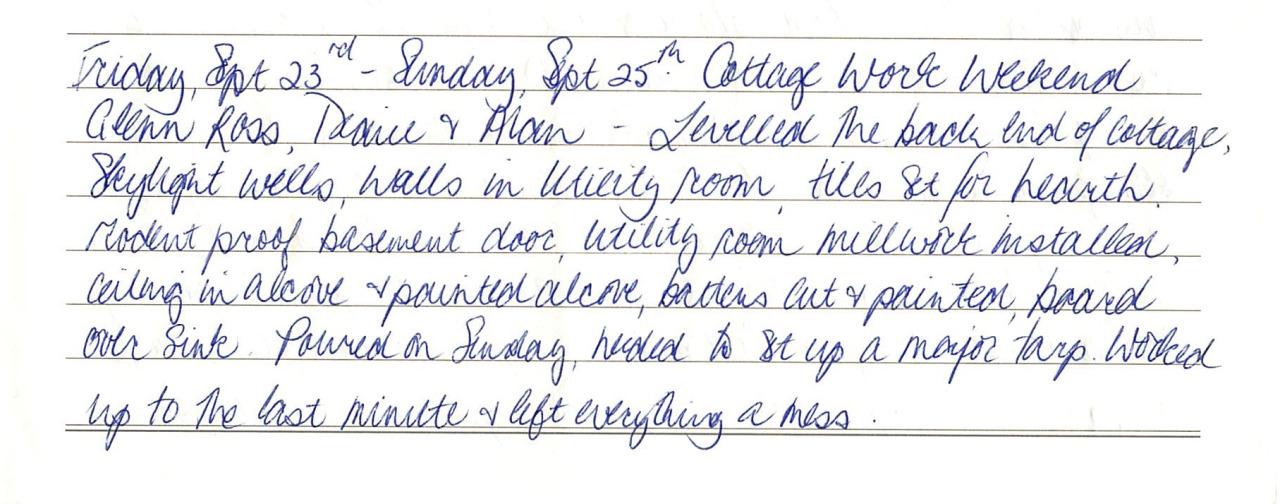 Friday, Sept 23rd - Sunday, Sept 25th. Cottage Work Weekend
Glenn Ross, Diane & Alan - Levelled the back end of cottage,
Skylight wells, walls in Utility room, tiles set for hearth.
Rodent proof basement door, utility room millwork installed,
Ceiling in alcove & painted alcove, battens cut & painted, board
over sink. Poured on Sunday, needed to set up a major tarp. Worked
up to the last minute & left everything a mess.